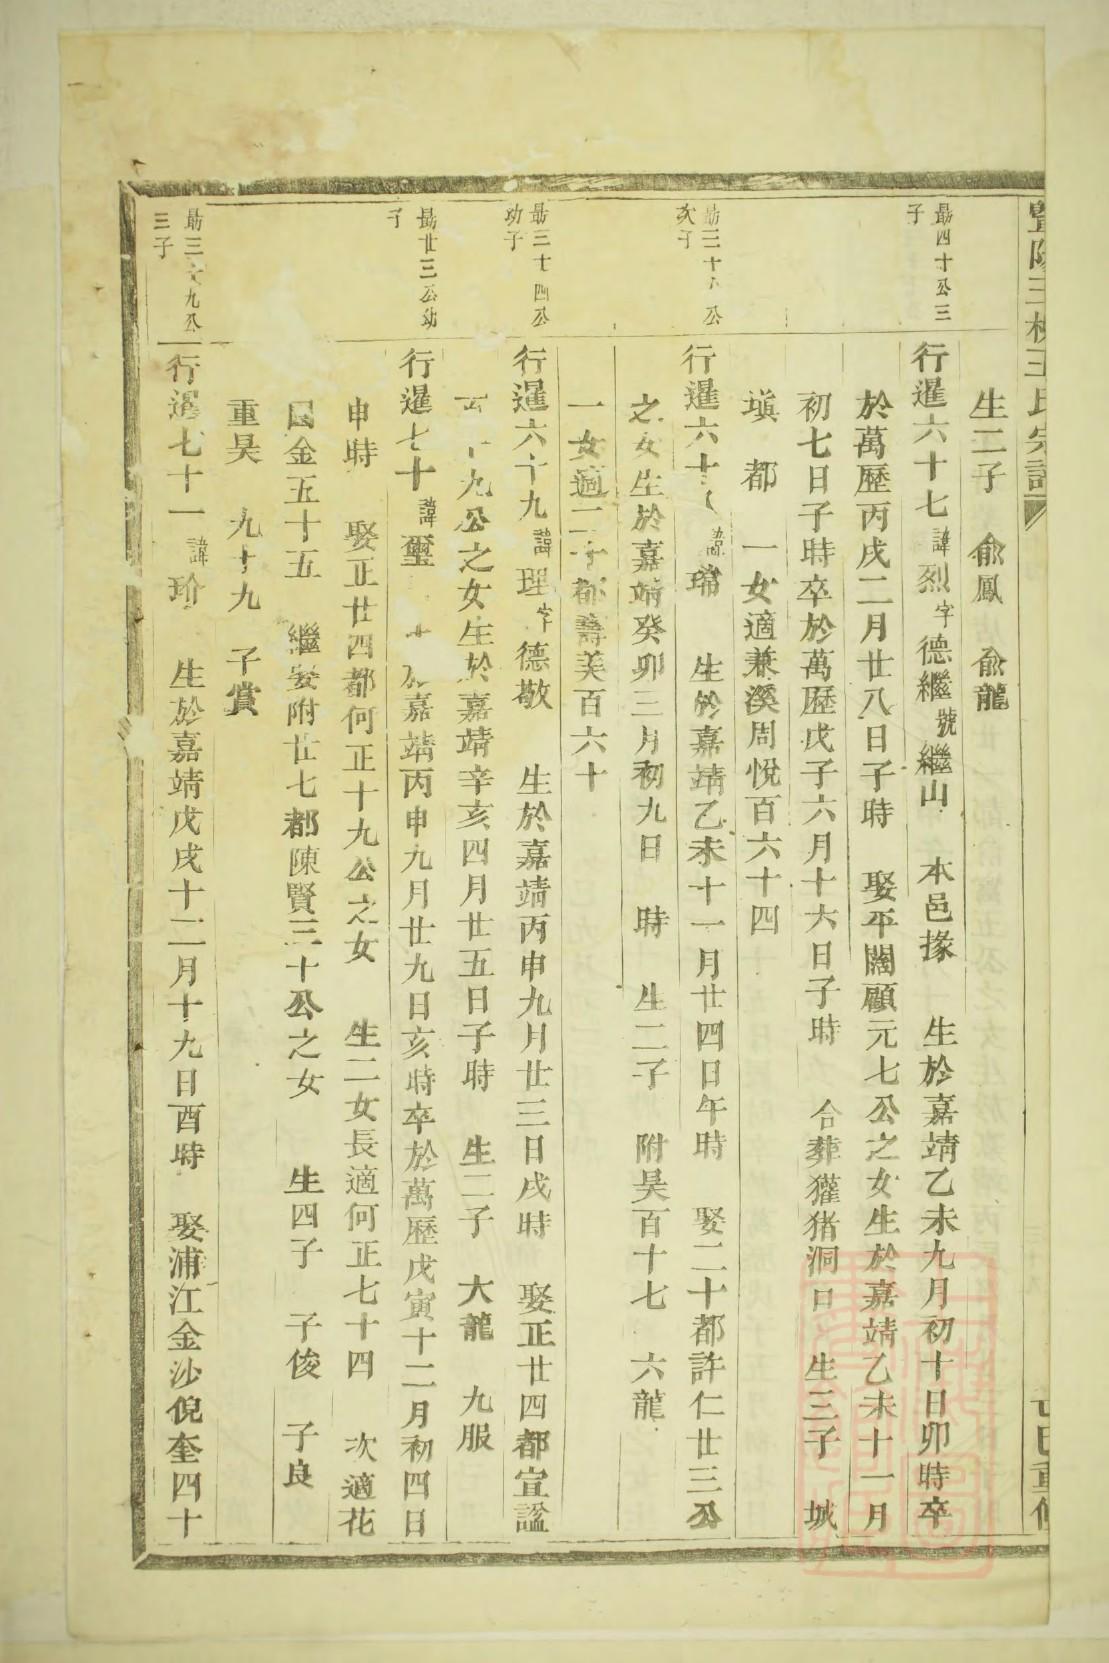 生二子 俞鳳 俞龍
勗四十公三
子
行暹六十七諱烈字德繼號繼山 本邑掾 生於嘉靖乙未九月初十日卯時卒
於萬歷丙戌二月廿八日子時 娶平闊顧元七公之女生於嘉靖乙未十一月
初七日子時卒於萬歷戊子六月十六日子時 合葬獾猪洞口 生三子 城
塡 都 一女適兼溪周悅百六十四
次子
行暹六十 諱瑞 生於嘉靖乙未十一月廿四日午時 娶二十都許仁廿三公
之女生於嘉靖癸卯三月初九日 時 生二子 附吴百十七 六龍
一女適二十都壽美百六十
勗三十四公
幼子
行暹六十九諱理字德敬 生於嘉靖丙申九月廿三日戌時 娶正廿四都宣謐
九公之女生於嘉靖辛亥四月廿五日子時 生二子 大龍 九服
勗廿三公幼
子
行暹七十諱璽 嘉靖丙申九月廿九日亥時卒於萬歷戊寅十二月初四日
申時 娶正廿四都何正十九公之女 生二女長適何正七十四 次適花
金五十五 繼娶附廿七都陳賢三十公之女 生四子 子俊 子良
重吴 九十九 子賞
三子
行暹七十一諱玠 生於嘉靖戊戌十二月十九日酉時 娶浦江金沙倪奎四十